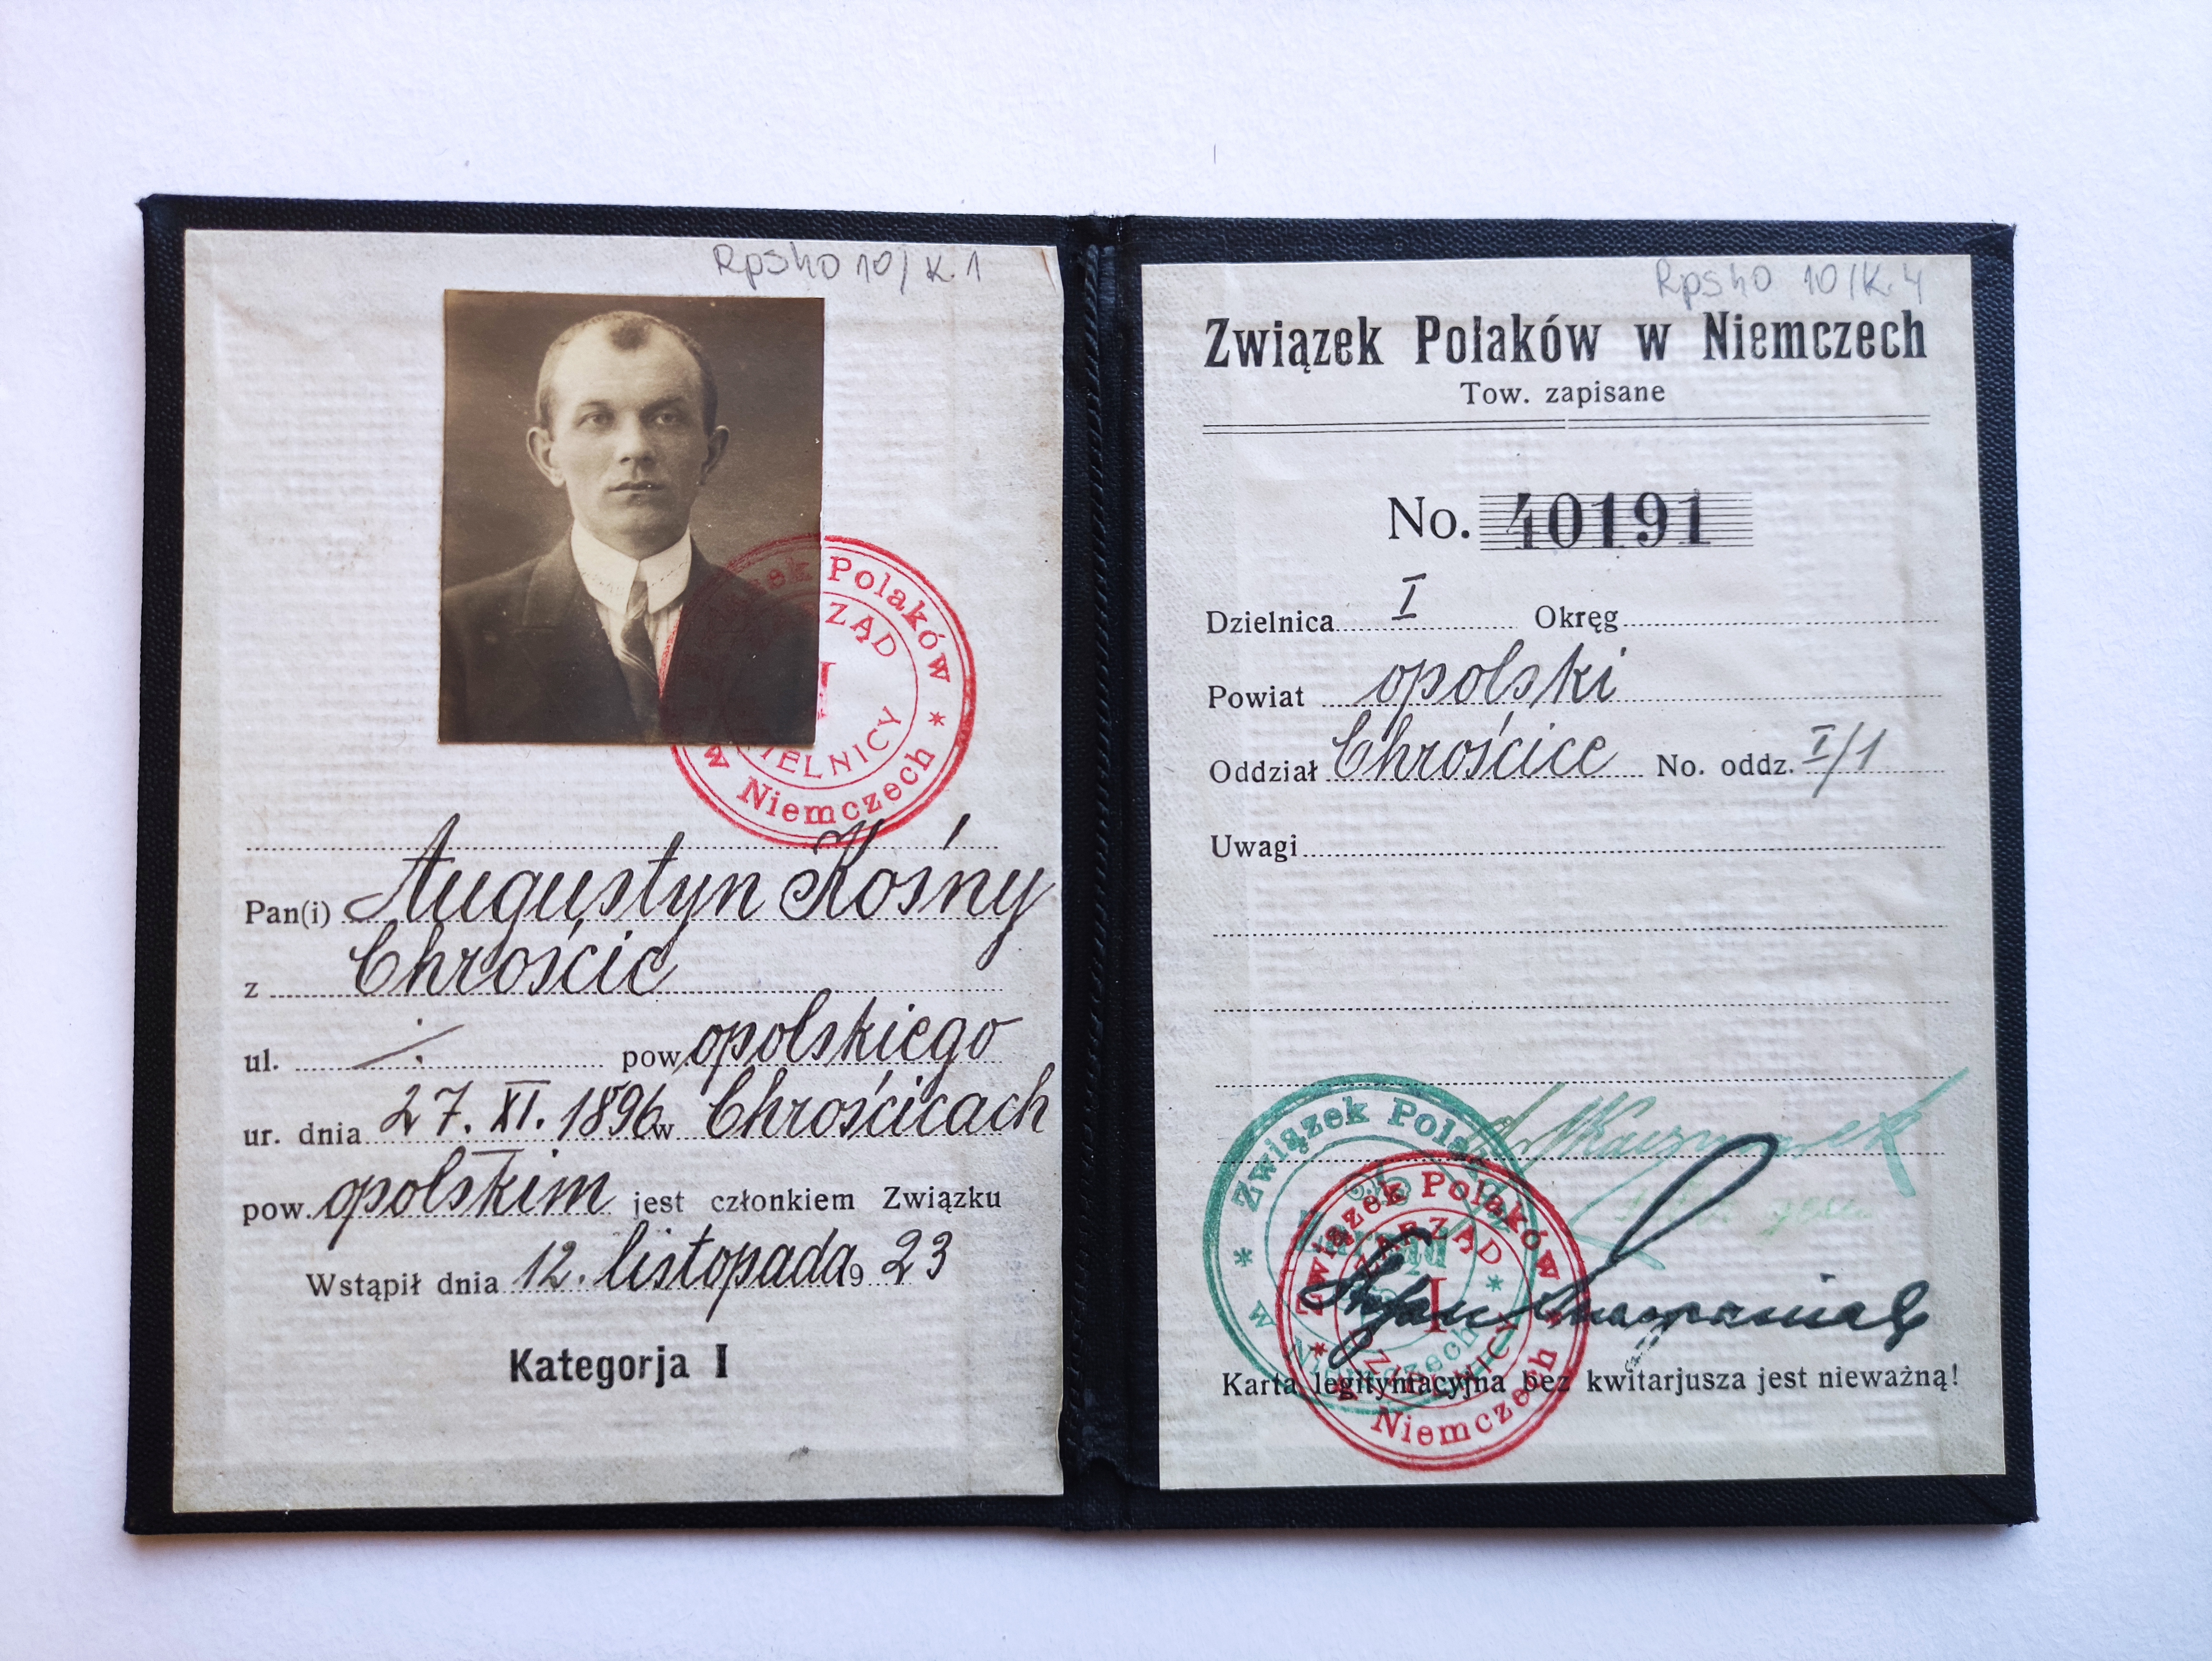 Rpsho 10/K.1
Związek Polaków
w Niemczech
ZARZĄD
I
DZIELNICY
Pan(i) Augustyn Kośny
z Chróścic
ul. ⁒ pow. opolskiego
ur. dnia 27. XI. 1896 w Chróścicach
pow. opolskim jest członkiem Związku
Wstąpił dnia 12. listopada 19 23
Kategorja I
Rpsho 10/K.4
Związek Polaków w Niemczech
Tow. zapisane
No. 40191
Dzielnica I Okręg
Powiat opolski
Oddział Chróścice No. oddz. I/1
Uwagi
Związek Polaków
w Niemczech
Związek Polaków
w Niemczech
ZARZĄD
I
DZIELNICY
Karta legitymacyjna bez kwitarjusza jest nieważną!